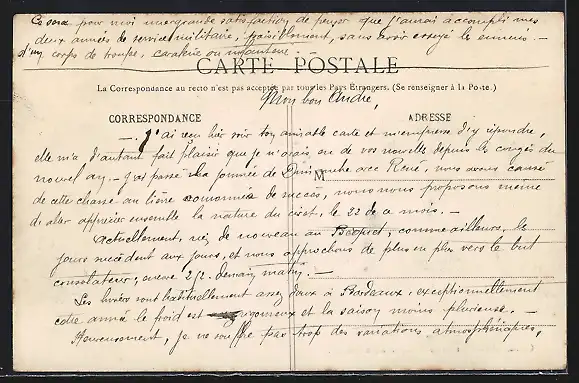 Ce sera pour moi une grande satisfaction, de penser que j'aurai accompli mes
deux années de service militaire, paisiblement, sans avoir essuyé les ennuis —
d'un corps de troupe, cavalerie ou infanterie. —
CARTE POSTALE
La Correspondance au recto n'est pas acceptée par tous les Pays Étrangers. (Se renseigner à la Poste.)
Mon bon André,
CORRESPONDANCE
ADRESSE
— J'ai reçu hier soir ton aimable carte et m'empresse d'y répondre,
elle m'a d'autant fait plaisir que je n'avais eu de vos nouvelles depuis les congés du
nouvel an. — J'ai passé la journée de Dimanche avec René, nous avons causé
M
de cette chasse au lièvre couronnée de succès, nous nous proposons même
de aller apprécier ensemble la nature du civet, le 22 de ce mois. —
Actuellement, suis de nouveau au Bouscat, comme ailleurs, les
jours succèdent aux jours, et nous approchons de plus en plus vers le but
consolateur; encore 212 demain matin. —
Les hivers sont habituellement assez doux à Bordeaux, exceptionnellement
cette année le froid est rigoureux et la saison moins pluvieuse. —
Heureusement, je ne souffre pas trop des variations atmosphériques,